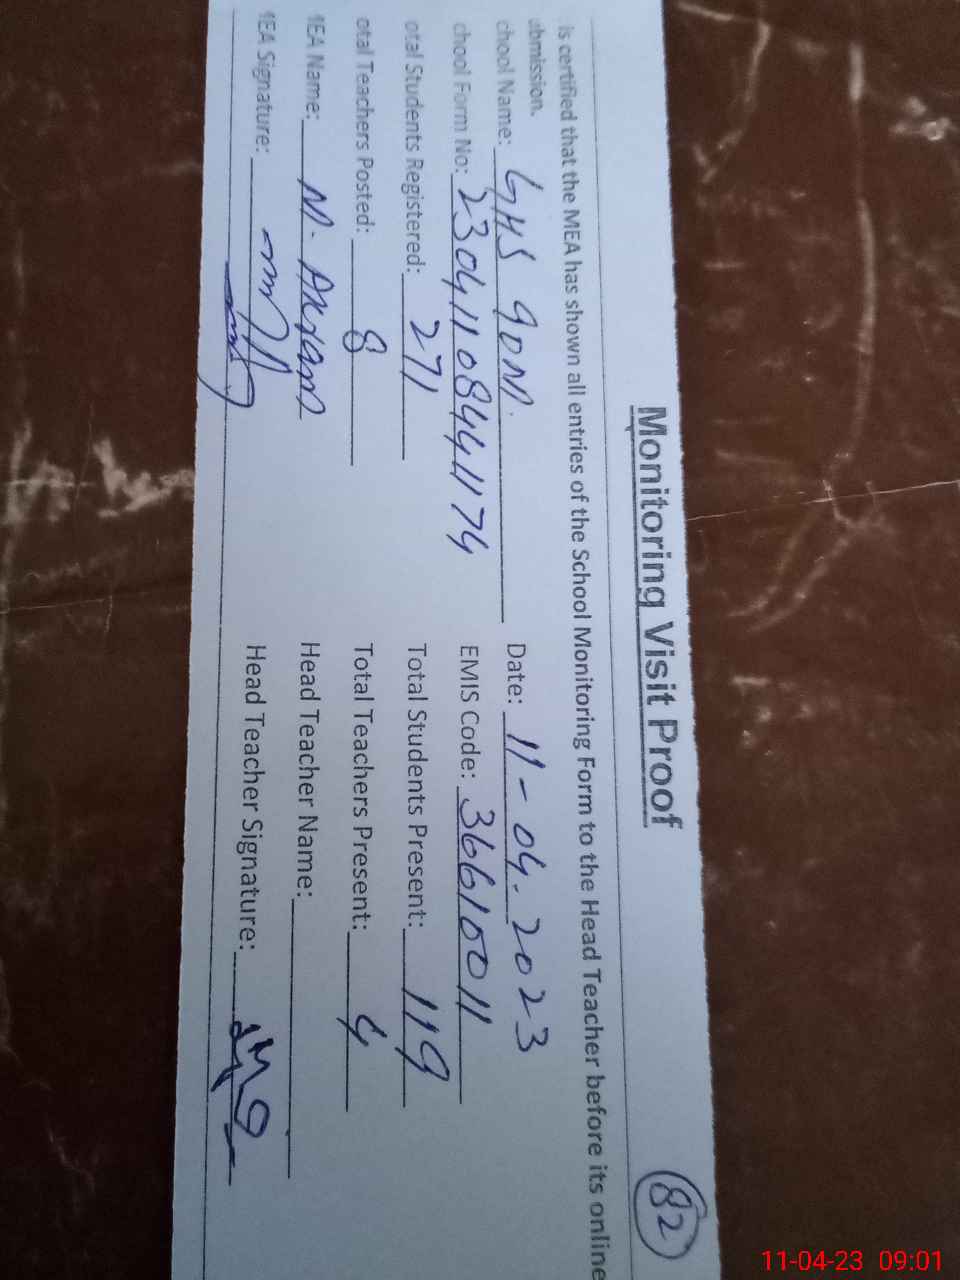 Monitoring Visit Proof
82
is certified that the MEA has shown all entries of the School Monitoring Form to the Head Teacher before its online
ubmission.
chool Name: GHS 90M. Date: 11-04-2023
chool Form No: 23041108441174 EMIS Code: 36610011
otal Students Registered: 271 Total Students Present: 119
otal Teachers Posted: 8 Total Teachers Present: 4
MEA Name: M. Akram Head Teacher Name:
MEA Signature: Head Teacher Signature:
11-04-23 09:01